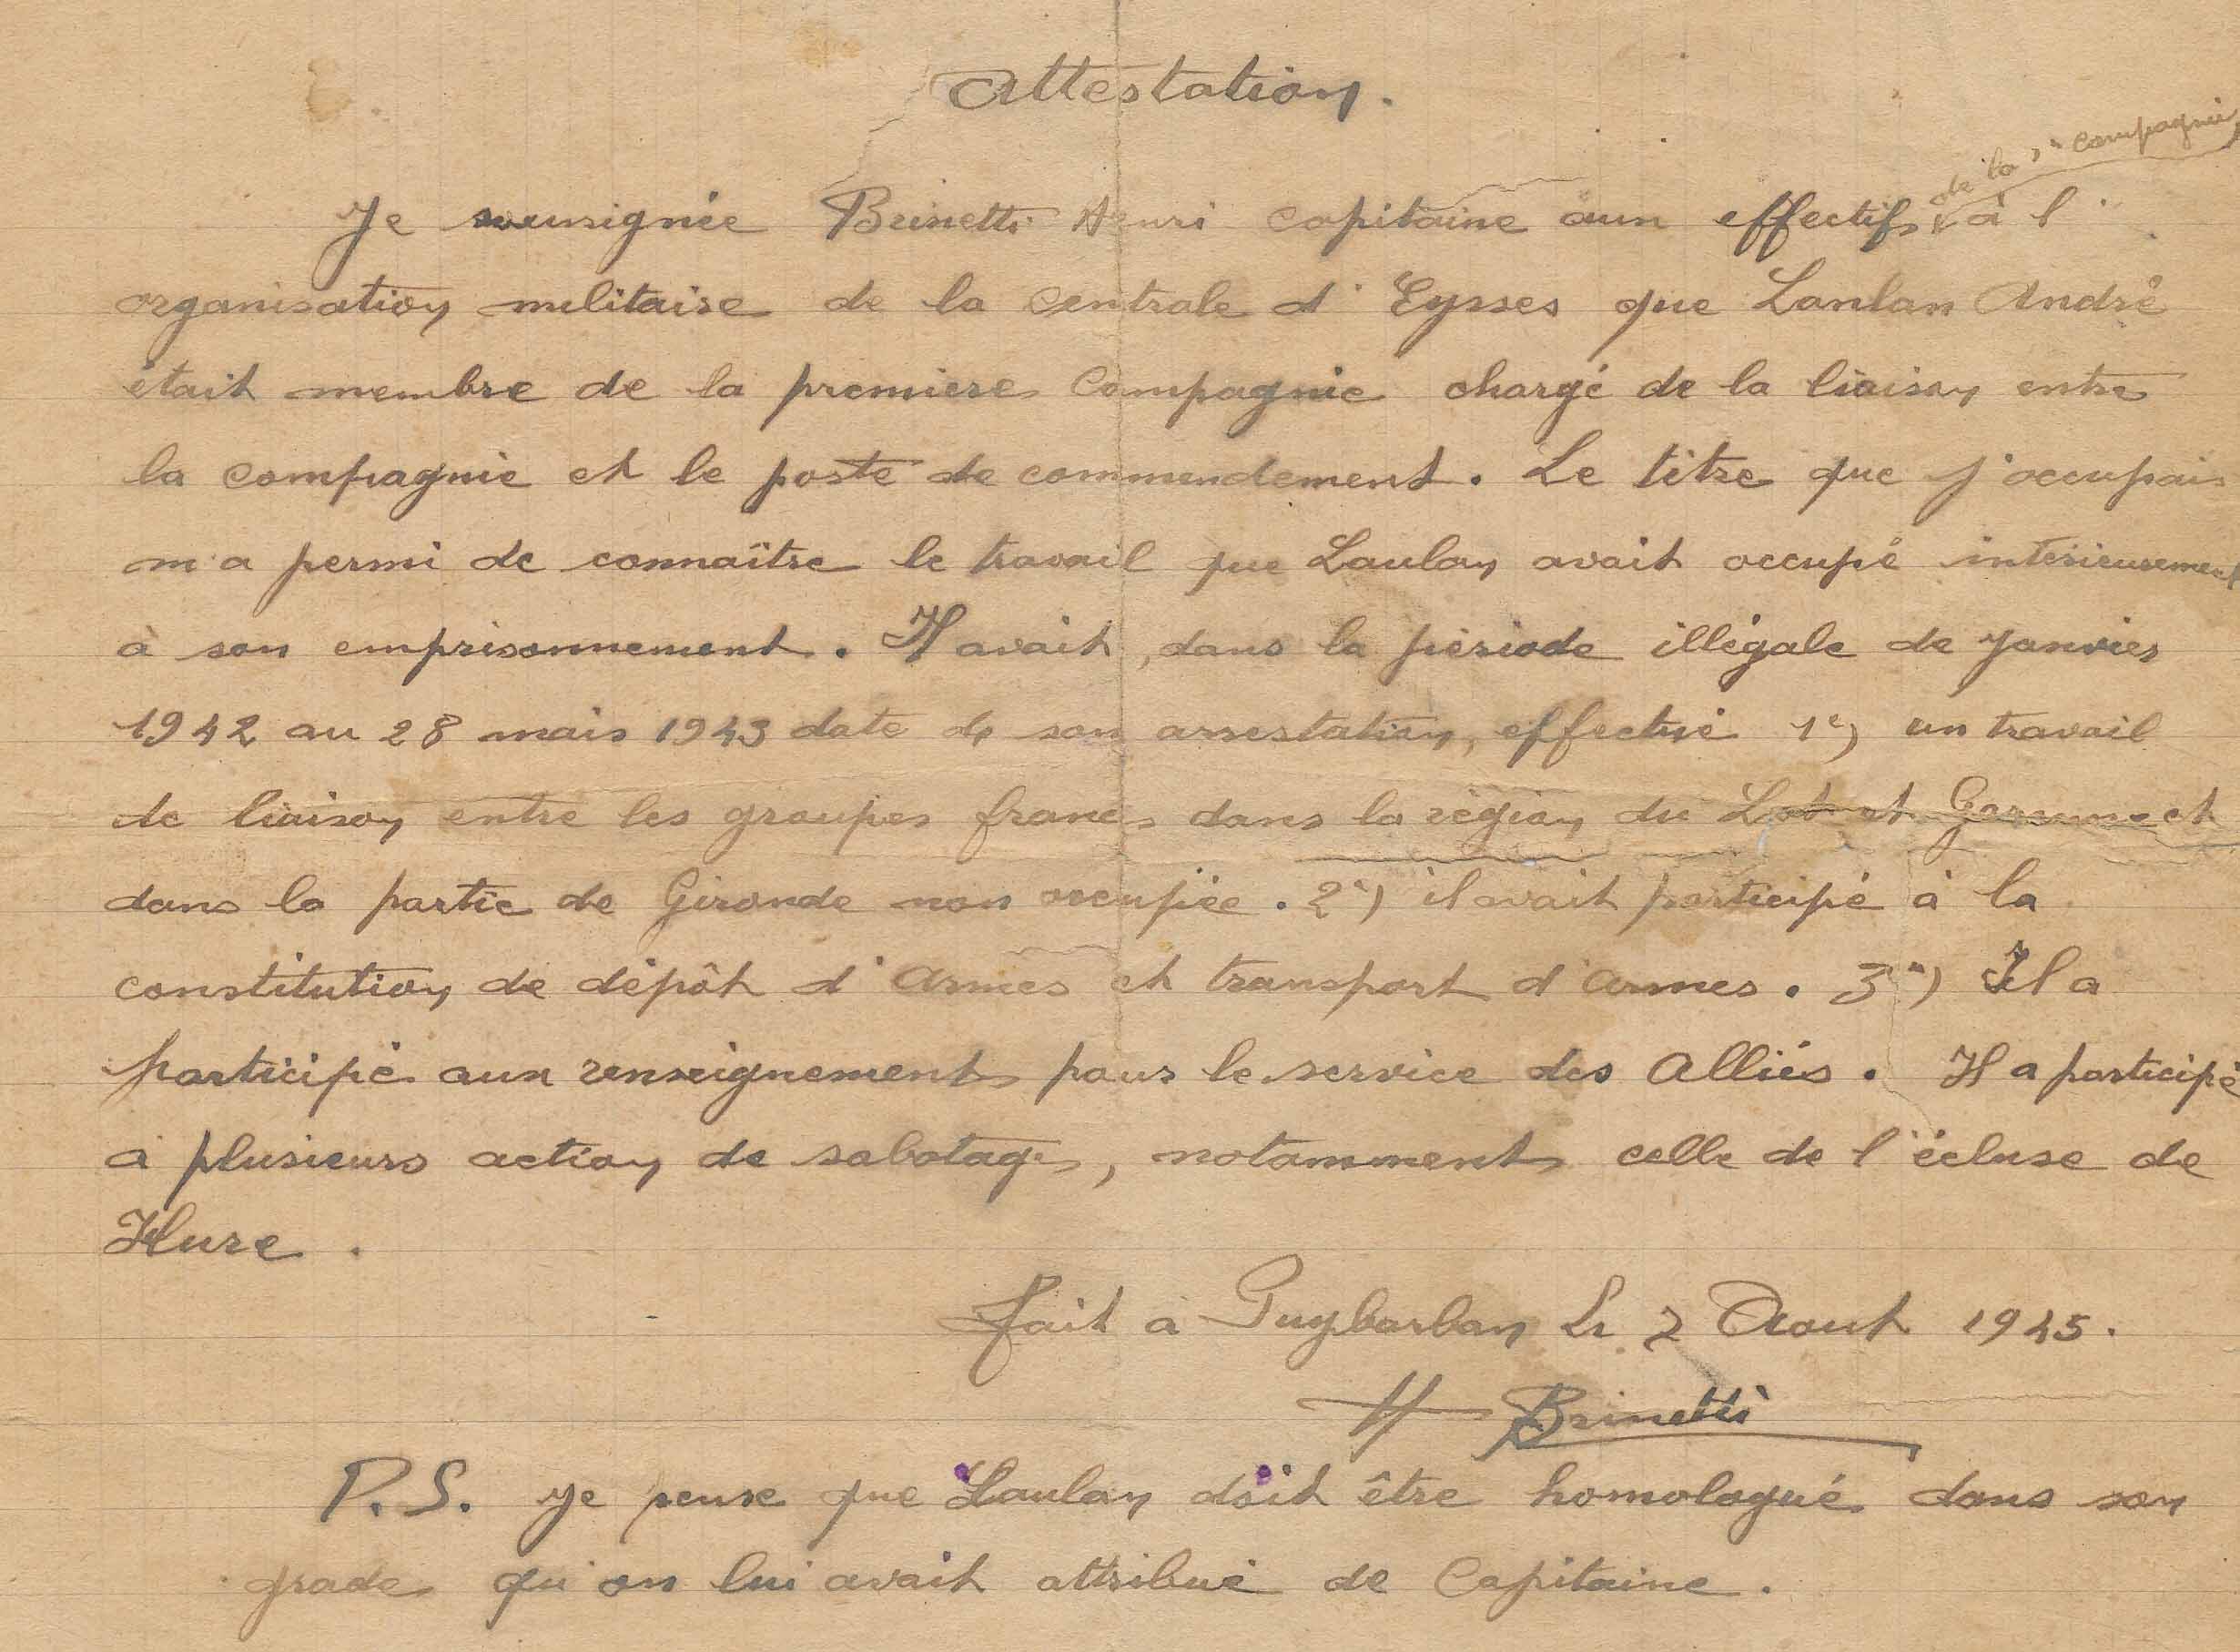 Attestation.
de la compagnie
Je sousignée Brinetti Henri capitaine aux effectifs à l'
organisation militaire de la Centrale d'Eysses que Laulan André
était membre de la premiere Compagnie chargé de la liaison entre
la compagnie et le poste de commendement. Le titre que j'occupais
m'a permi de connaître le travail que Laulan avait occupé intérieurement
à son emprisonnement. Il avait, dans la période illégale de Janvier
1942 au 28 mais 1943 date de son arrestation, effectué 1°) un travail
de liaison entre les groupes francs dans la région du Lot et Garonne et
dans la partie de Gironde non occupée. 2°) il avait participé à la
constitution de dépôt d'Armes et transport d'armes. 3°) Il a
participé aux renseignements pour le service des Alliés. Il a participé
à plusieurs action de sabotages, notamments celle de l'écluse de
Hure.
fait à Puybarban Le 2 Aout 1945.
H Brinetti
P.S. Je pense que Laulan doit être homologué dans son
grade qu'on lui avait attribué de Capitaine.